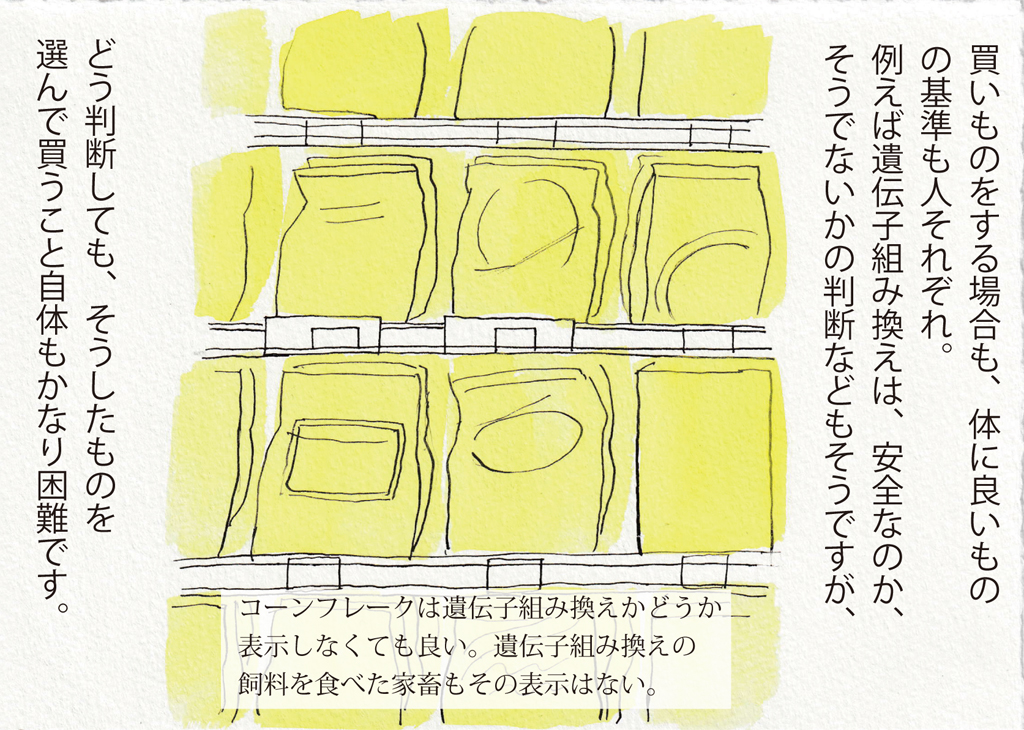 買いものをする場合も、体に良いもの
の基準も人それぞれ。
例えば遺伝子組み換えは、安全なのか、
そうでないかの判断などもそうですが、
どう判断しても、そうしたものを
選んで買うこと自体もかなり困難です。
コーンフレークは遺伝子組み換えかどうか
表示しなくても良い。遺伝子組み換えの
飼料を食べた家畜もその表示はない。